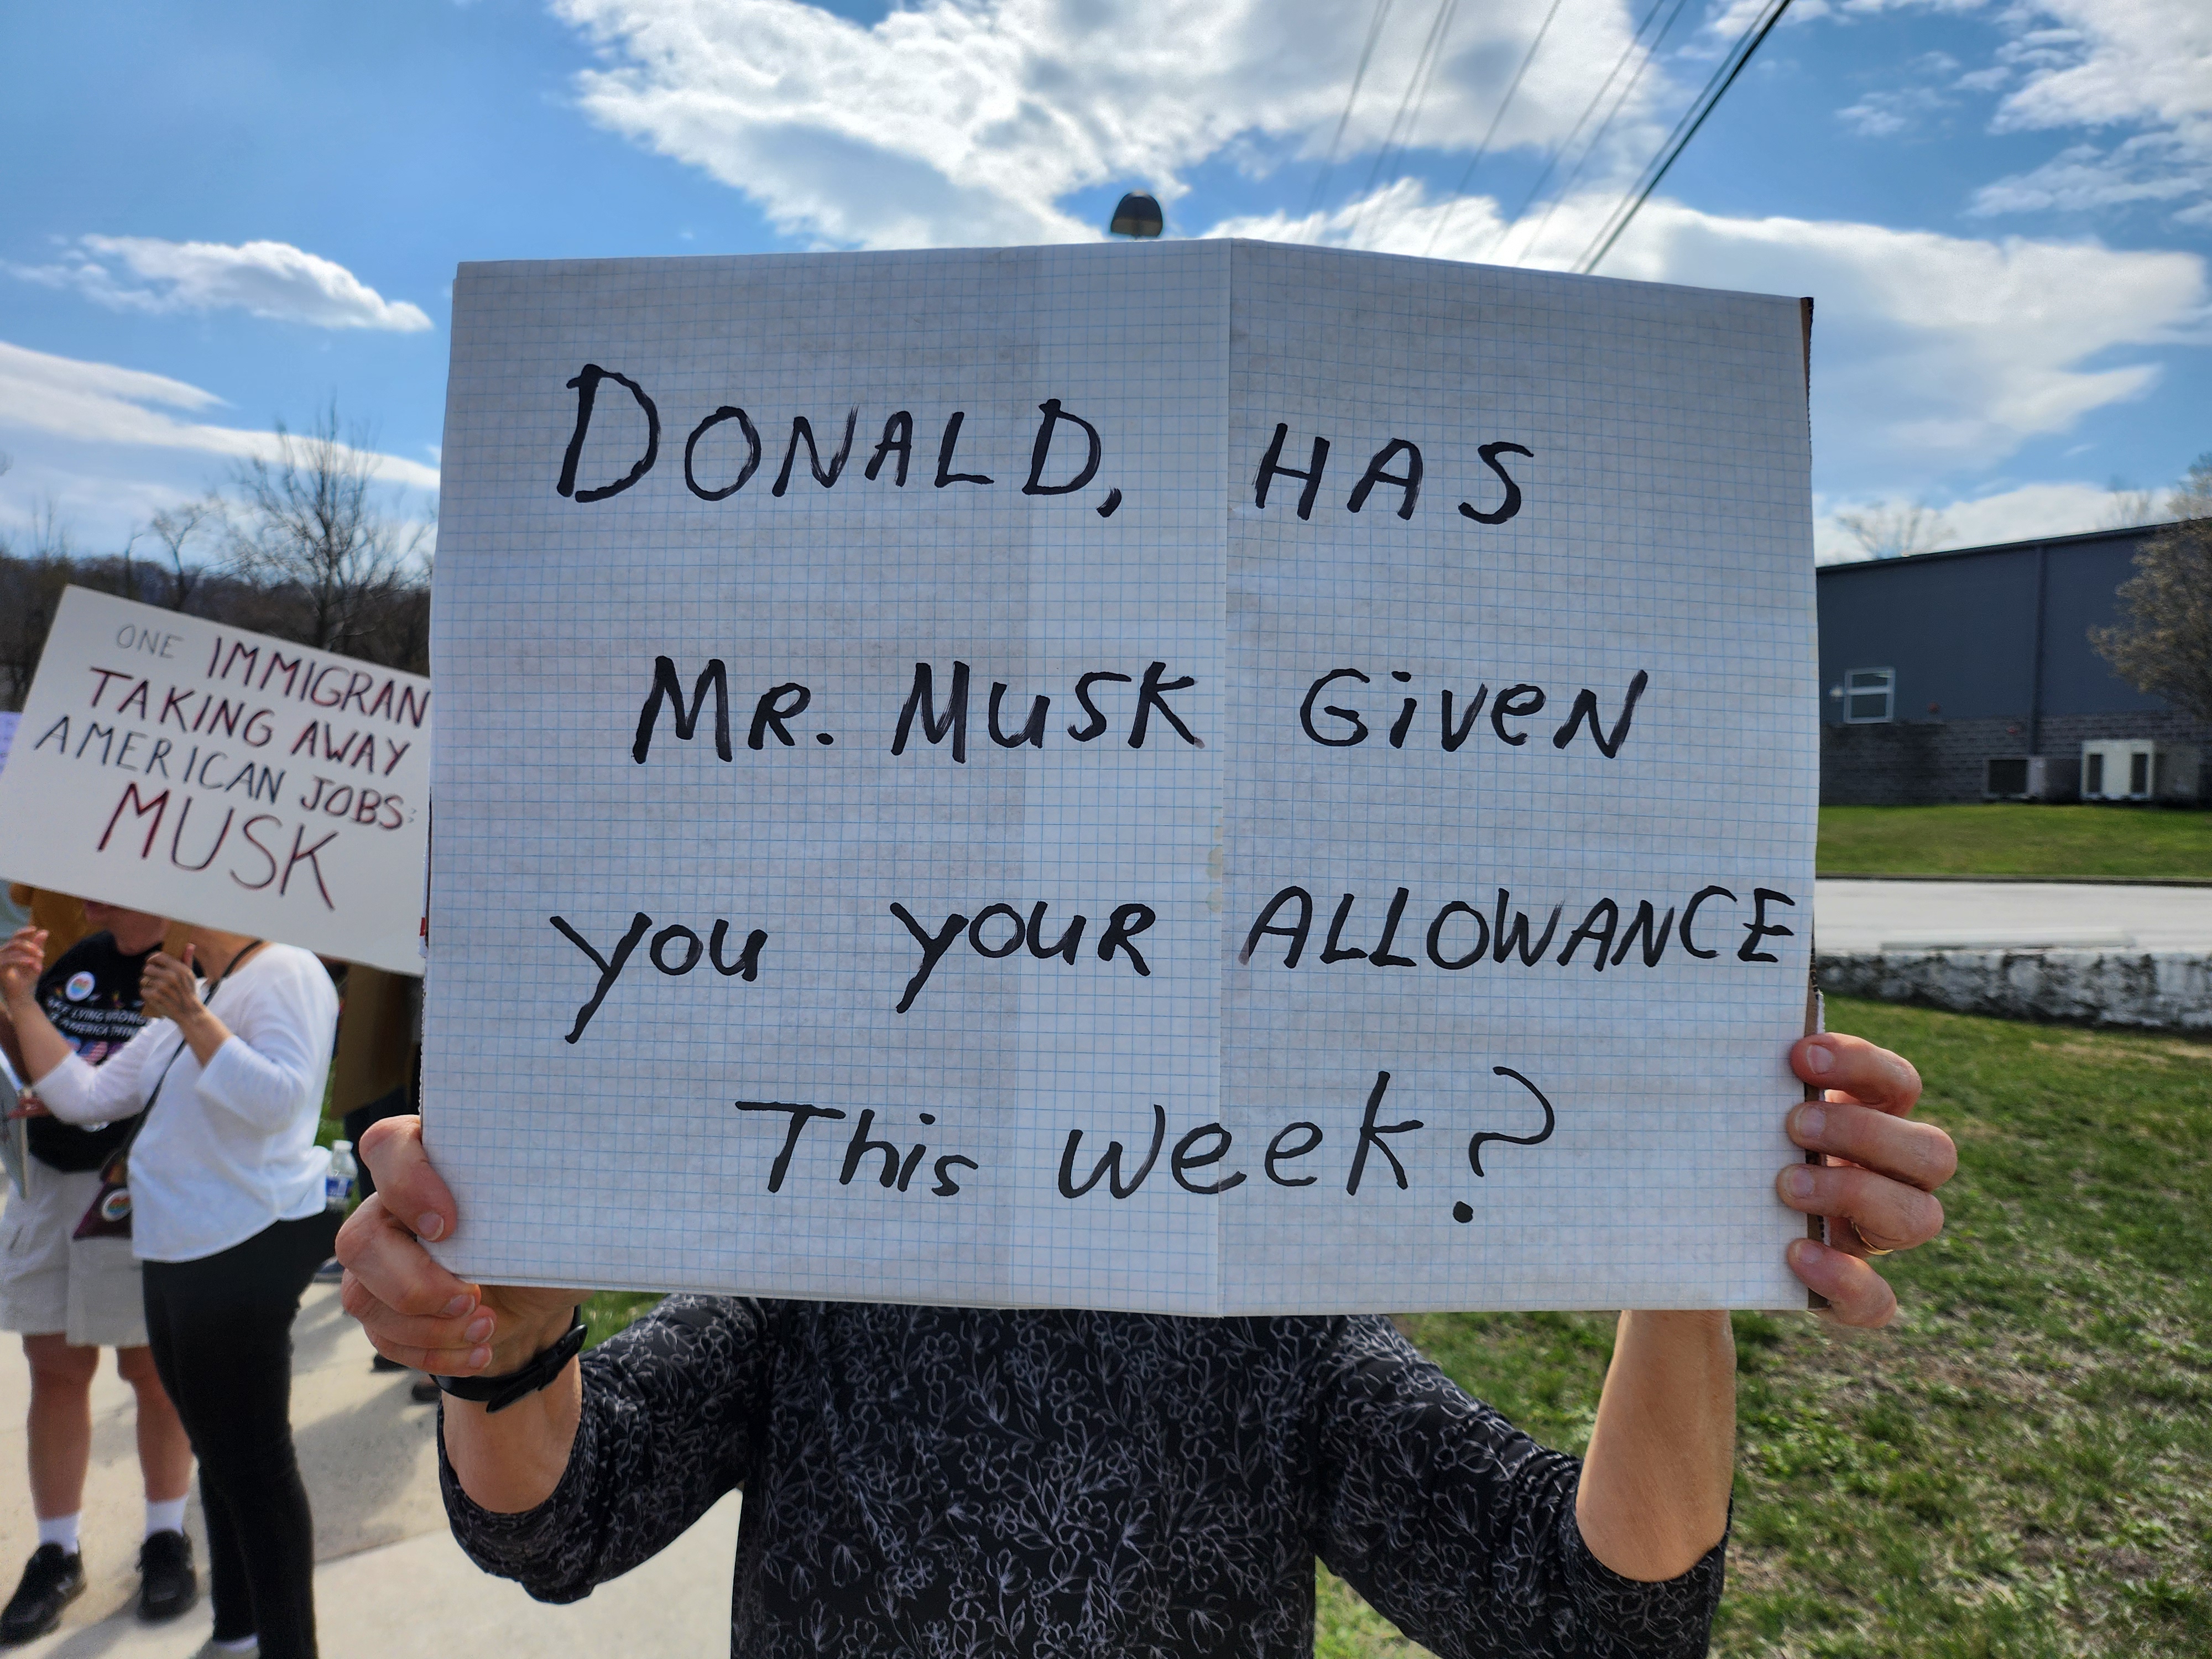 DONALD, HAS
MR. MUSK GIVEN
you youR ALLOWANCE
This week?
ONE IMMIGRAN
TAKING AWAY
AMERICAN JOBS:
MUSK